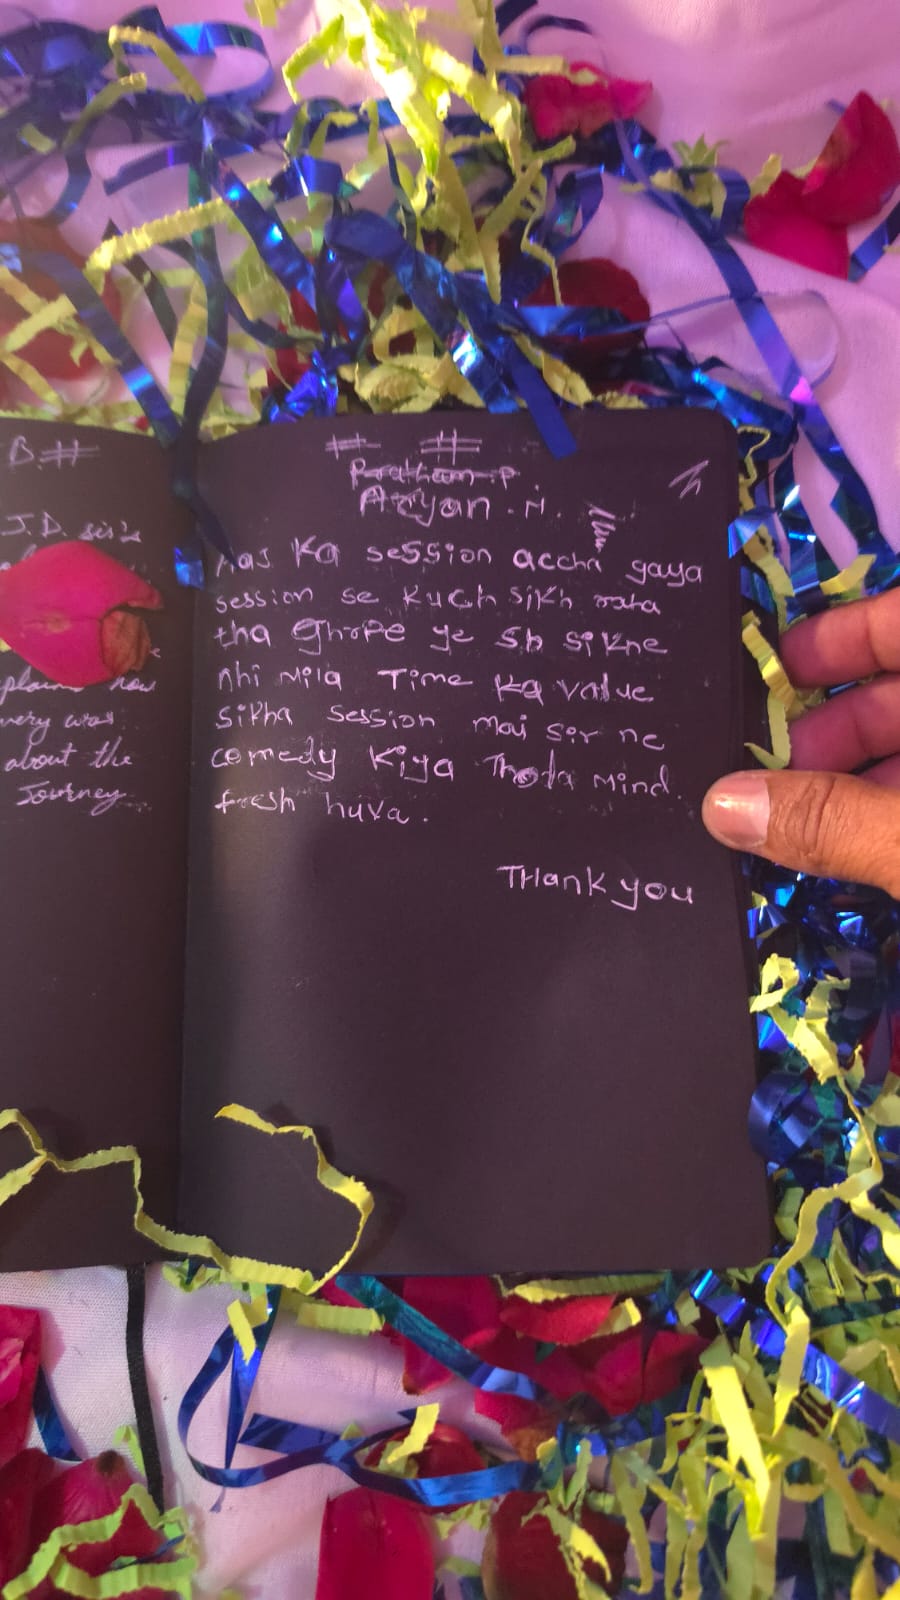 B.#
J.D. sir's
how
very was
about the
Journey
# #
Pratham.P.
Aryan.N.
Aaj Ka session accha gaya
session se Kuch sikh raha
tha Ghrpe ye sb sikne
nhi Mila Time Ka value
sikha session mai sir ne
comedy Kiya Thoda Mind
fresh huva.
THank you